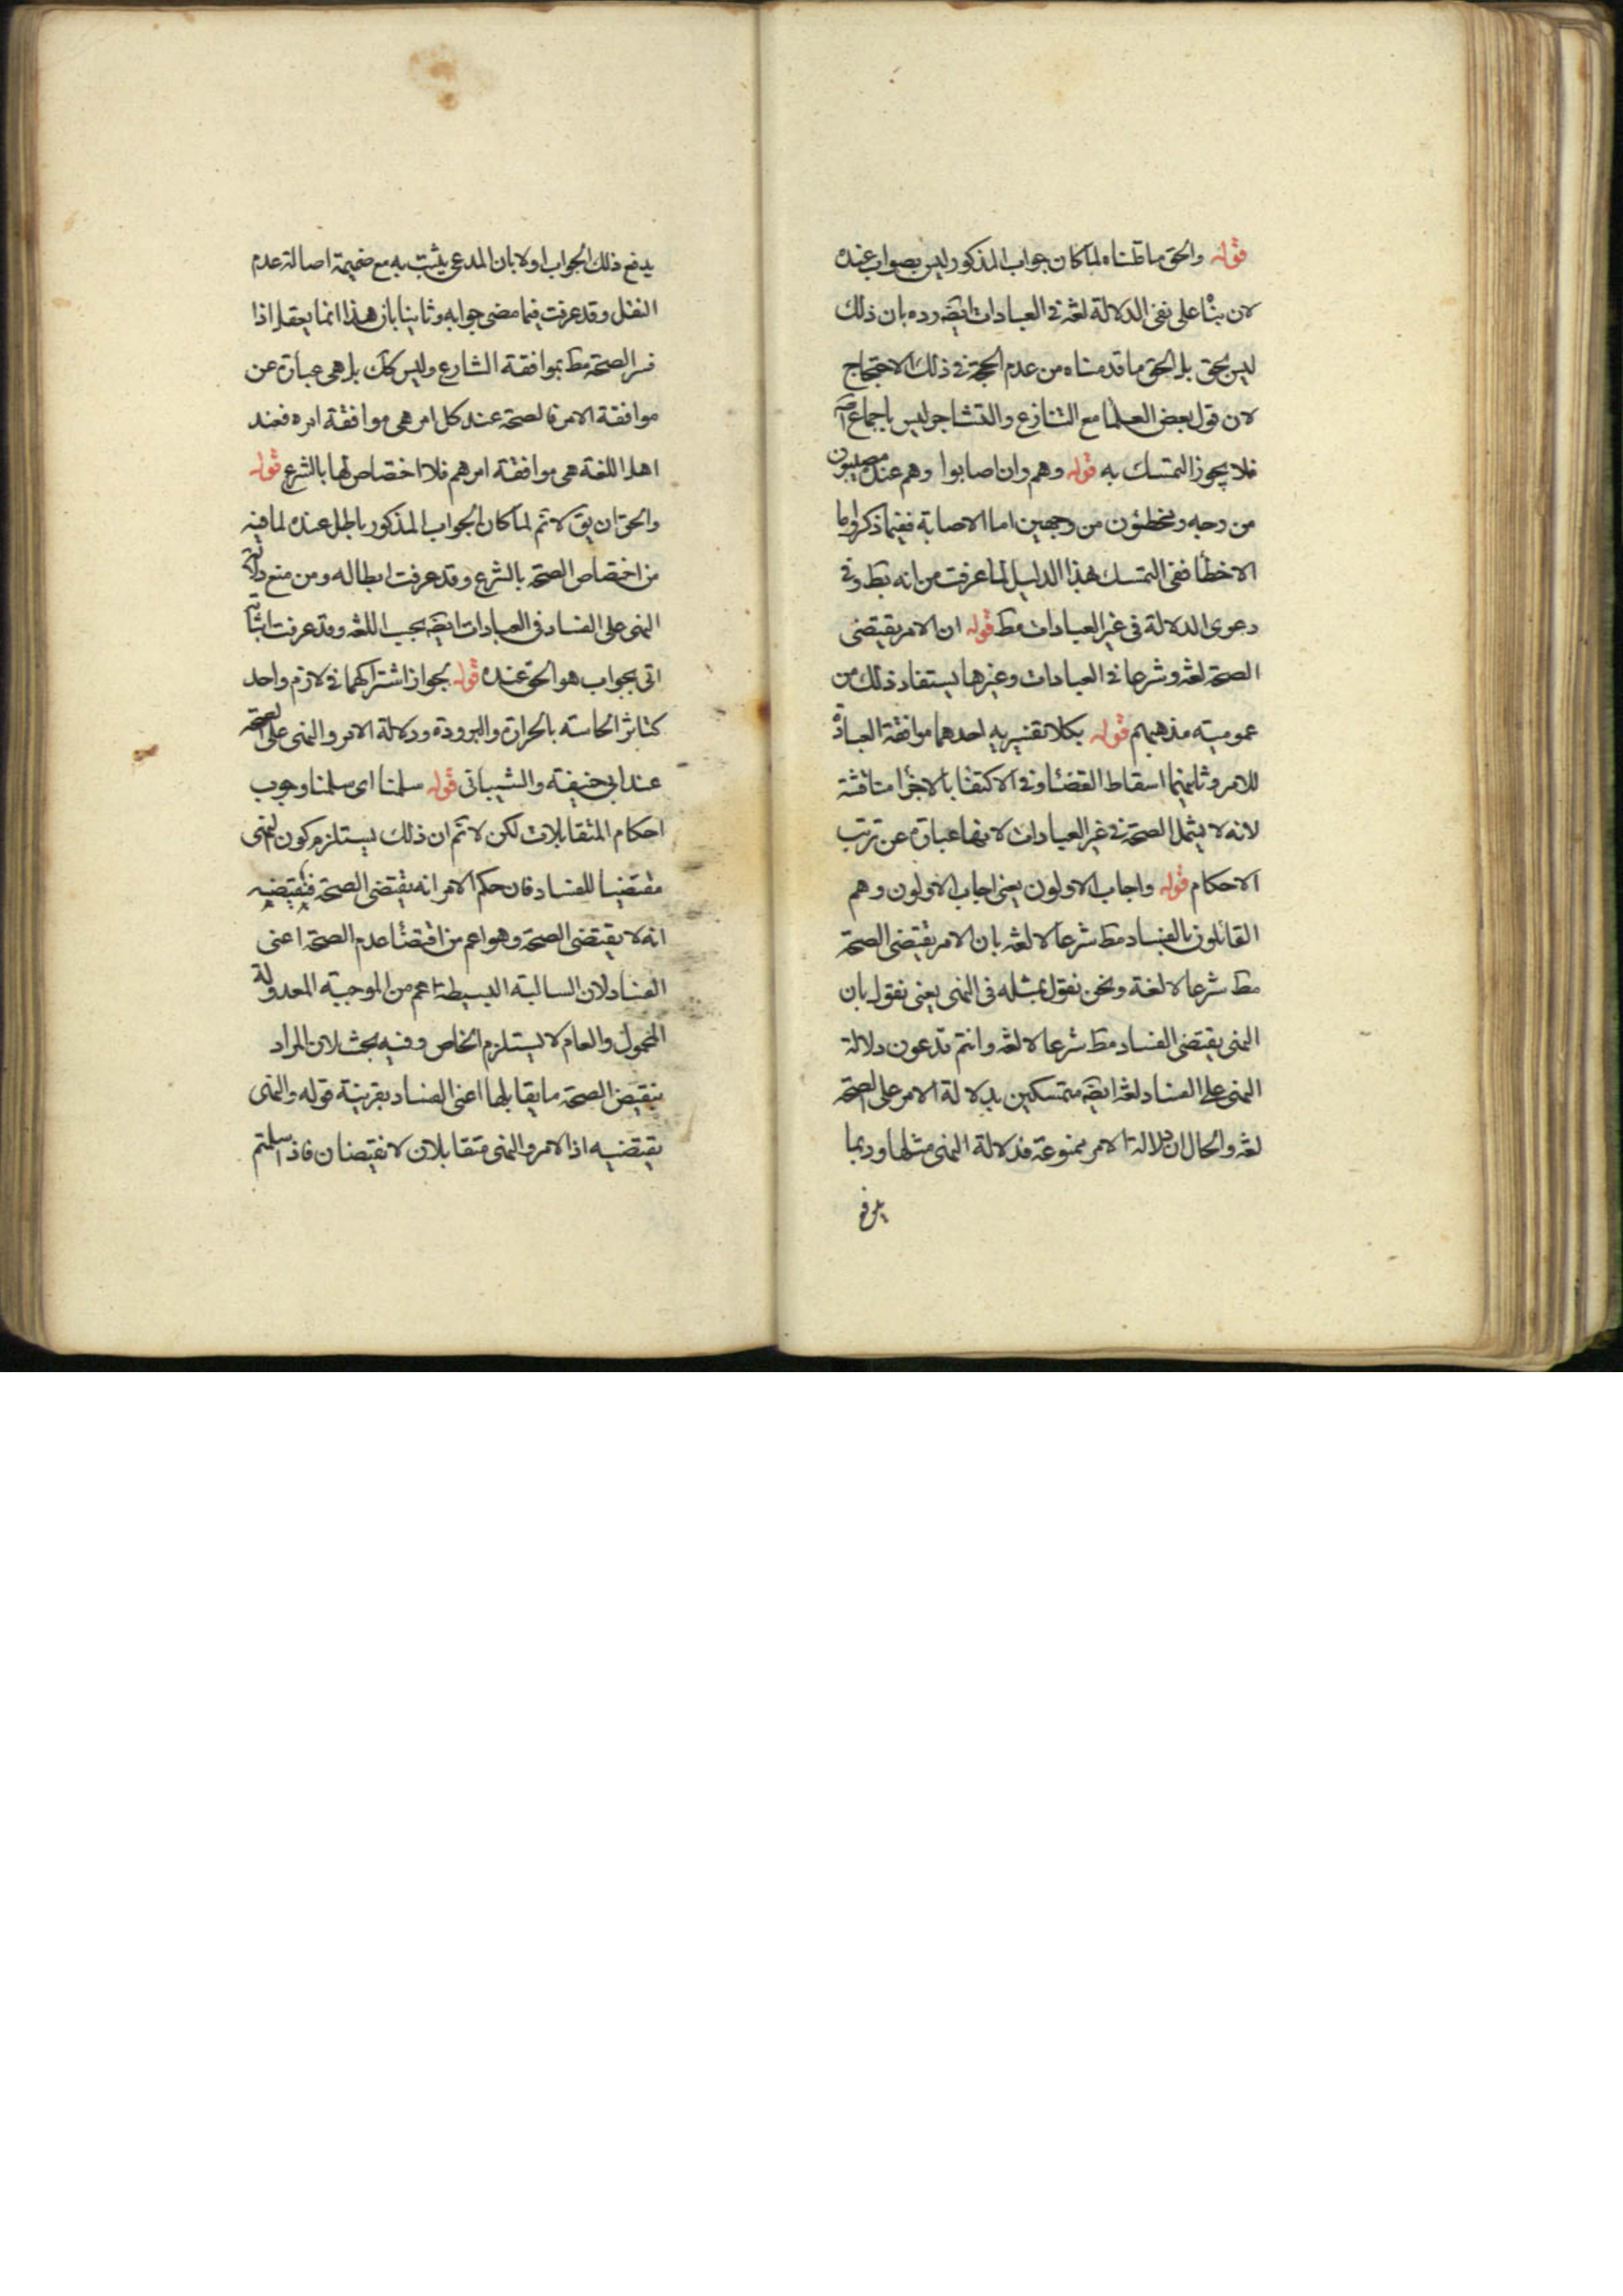 قوله والحق ما قدمناه لما كان جواب المذكور ليس بصواب عنده
لان بناء على نفى الدلالة لغة في العبادات ايضه رده بان ذلك
ليس بحق بل الحق ما قدمناه من عدم الحجة في ذلك الاحتجاج
لان قول بعض العلما مع التنازع والتشاجر ليس باجماع
فلا يجوز التمسك به قوله وهم وان اصابوا وهم عنده مصيبون
من وجه ومخطئون من وجهين اما الاصابة ففيما ذكر واما
الاخطأ ففى التمسك بهذا الدليل لما عرفت من انه بط وفى
دعوى الدلالة فى غير العبادات مط قوله ان الامر يقتضى
الصحة لغة وشرعا فى العبادات وغيرها يستفاد ذلك من
عمومية مذهبهم قوله بكلا تفسيريه احدهما موافقة العبادة
للامر وثانيهما اسقاط القضاء وفى الاكتفا بالاجزا مناقشة
لانه لا يشمل الصحة فى غير العبادات لانها عبارة عن ترتب
الاحكام قوله واجاب الاولون يعنى اجاب الاولون وهم
القائلون بالفساد مط شرعا لا لغة بان الامر يقتضى الصحة
مط شرعا لا لغة ونحن نقول بمثله فى النهى يعنى نقول بان
النهى يقتضى الفساد مط شرعا لا لغة وانتم تدعون دلالة
النهى على الفساد لغة ايضه متمسكين بدلالة الامر على الصحة
لغة والحال ان دلالة الامر ممنوعة فدلالة النهى مثلها وربما
يدفع
يدفع ذلك الجواب اولا بان المدعى يثبت به مع ضميمة اصالة عدم
النقل وقد عرفت فيما مضى جوابه وثانيا بان هذا انما يعقل اذا
فسر الصحة مط بموافقة الشارع وليس كك بل هى عبارة عن
موافقة الامر فالصحة عند كل امر هى موافقة امره فعند
اهل اللغة هى موافقة امرهم فلا اختصاص لها بالشرع قوله
والحق ان يق لا نم لما كان الجواب المذكور باطل عنده لما فيه
من اختصاص الصحة بالشرع وقد عرفت ابطاله ومن منع دلالة
النهى على الفساد فى العبادات ايضه بحسب اللغة وقد عرفت اثباته
اتى بجواب هو الحق عنده قوله بجواز اشتراكهما فى لازم واحد
كتاثر الحاسة بالحرارة والبرودة ودلالة الامر والنهى على الصحة
عند ابى حنيفة والشيبانى قوله سلمنا اى سلمنا وجوب
احكام المتقابلات لكن لا نم ان ذلك يستلزم كون النهى
مقتضيا للفساد فان حكم الامر انه يقتضى الصحة فنقيضه
انه لا يقتضى الصحة وهو اعم من اقتضاء عدم الصحة اعنى
الفساد لان السالبة البسيطة اعم من الموجبة المعدولة
المحمول والعام لا يستلزم الخاص وفيه بحث لان المراد
بنقيض الصحة ما يقابلها اعنى الفساد بقرينة قوله والنهى
يقتضيه اذ الامر والنهى متقابلان لا نقيضان فاذا سلمتم